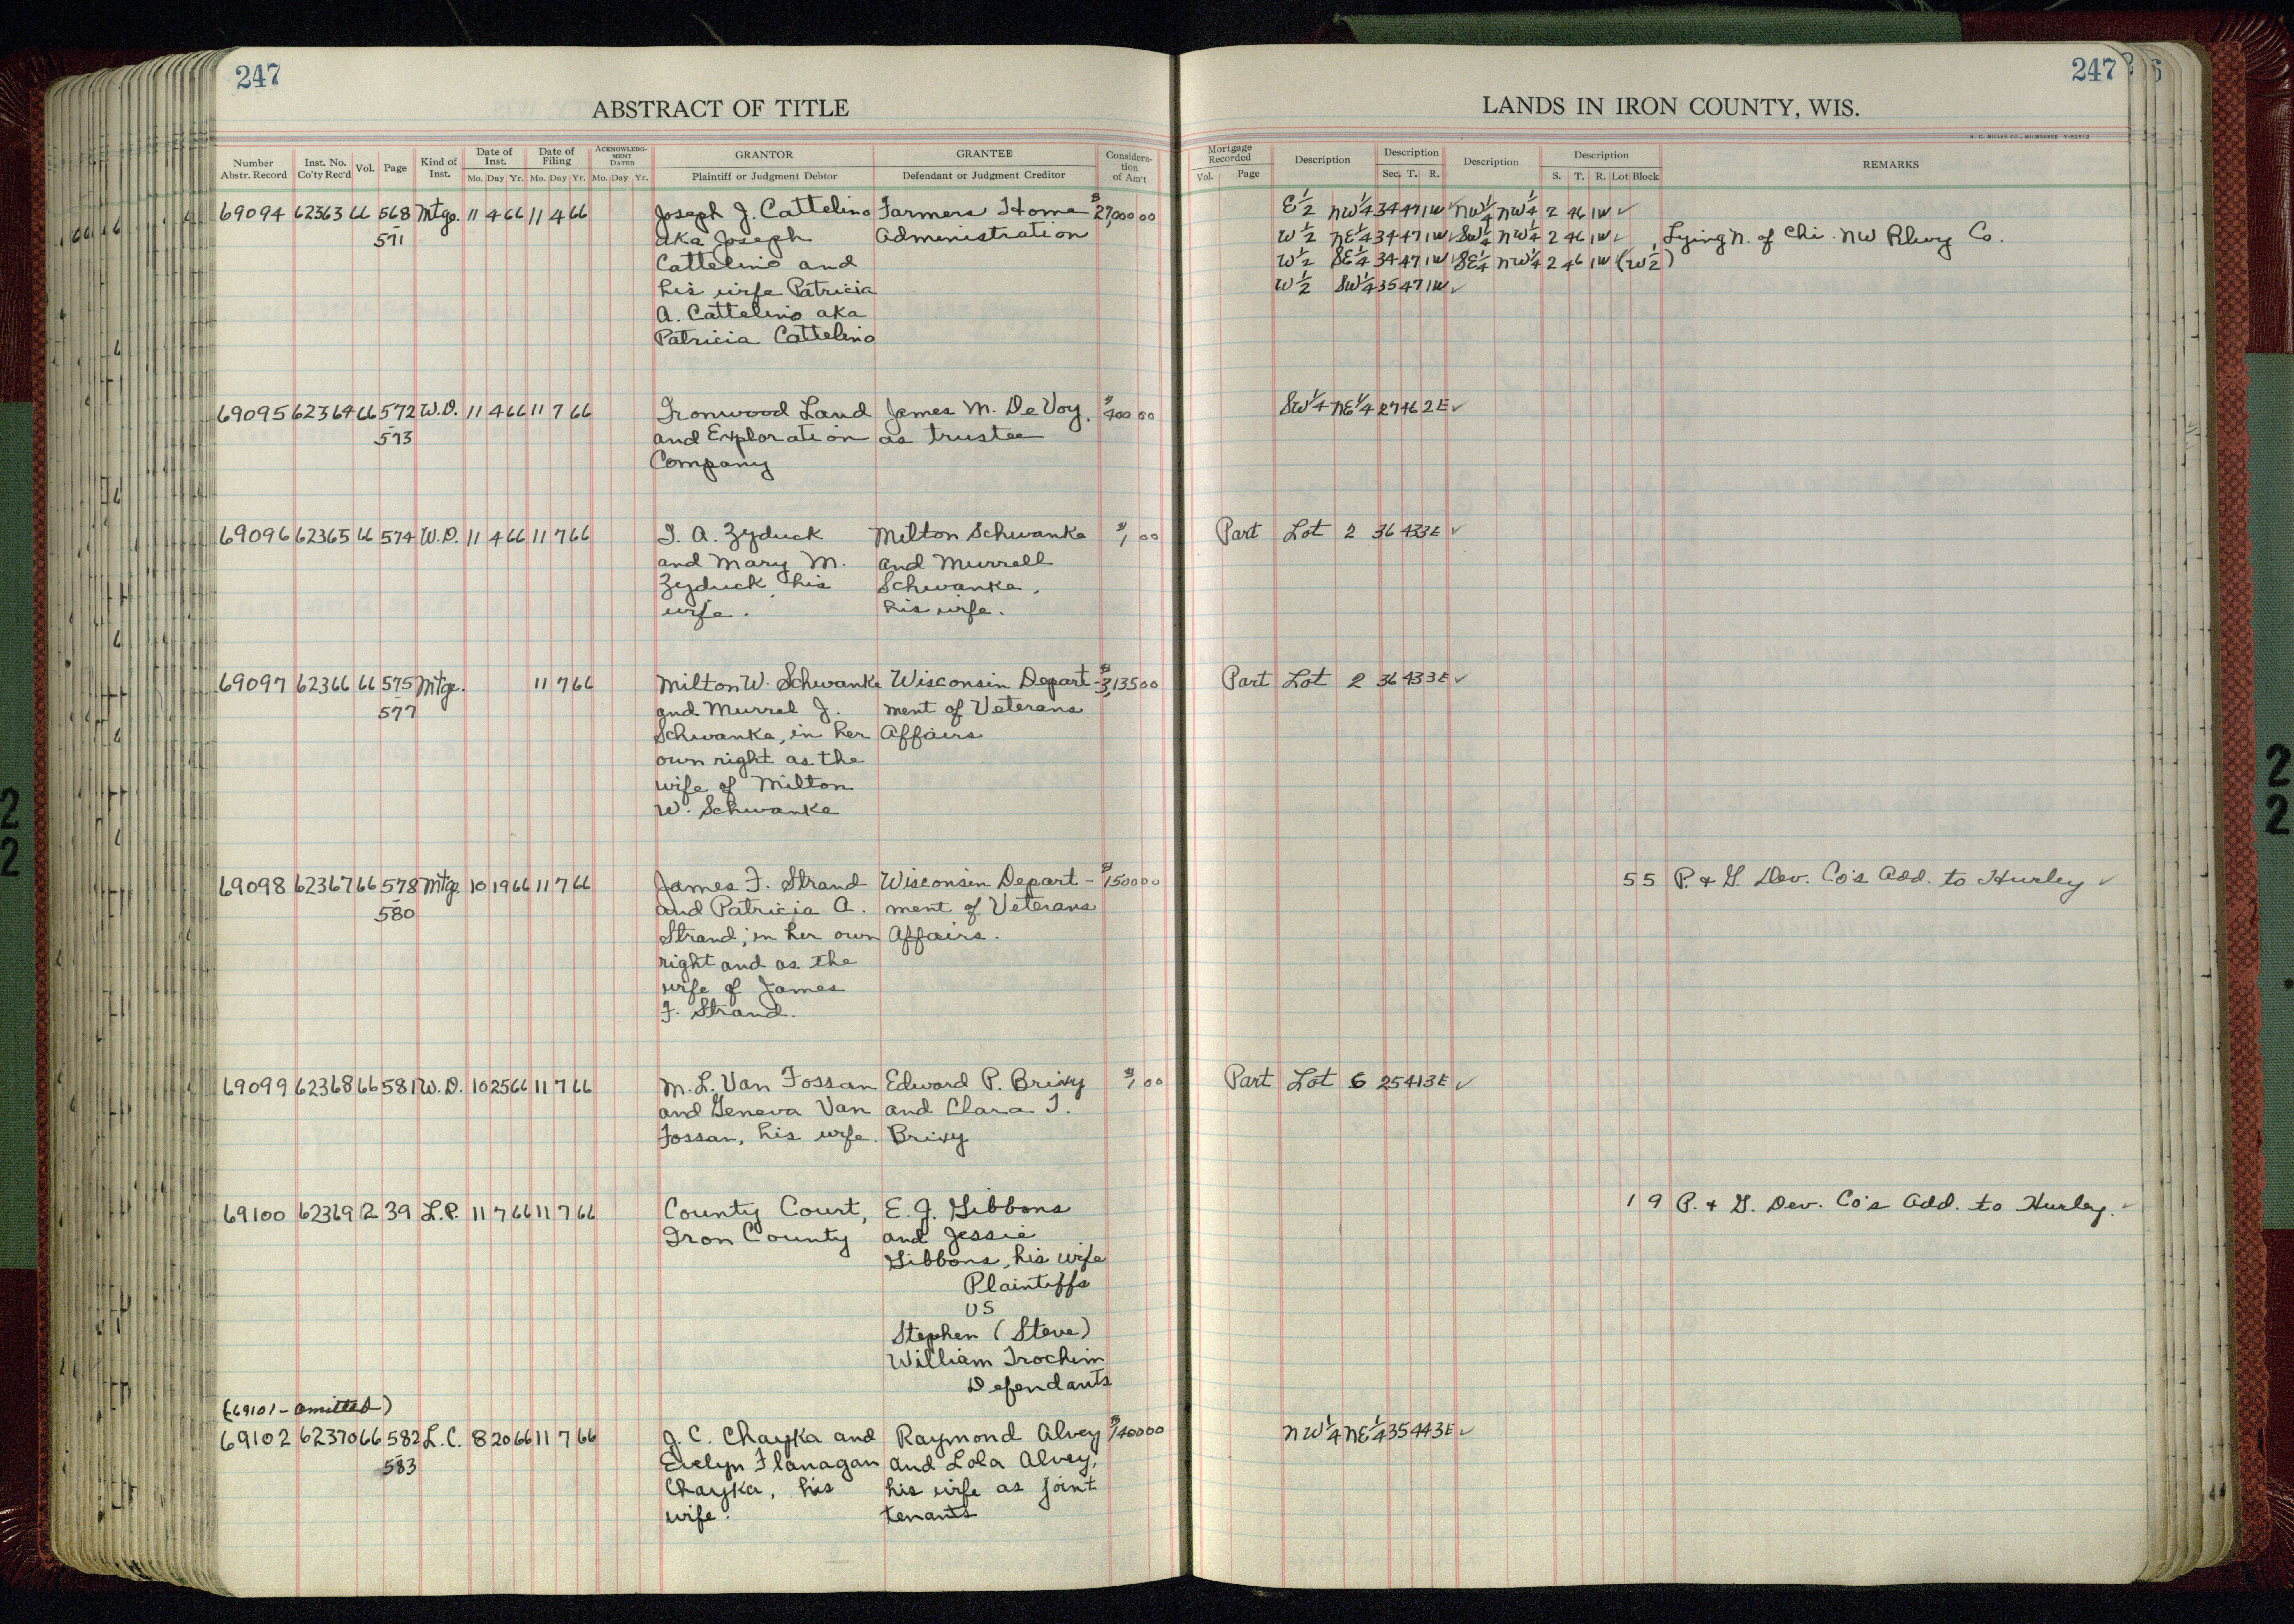 247
ABSTRACT OF TITLE
Number Abstr. Record Inst. No. Co'ty Rec'd Vol. Page Kind of Inst. Date of Inst. Mo. Day Yr. Date of Filing Mo. Day Yr. ACKNOWLEDGMENT DATED Mo. Day Yr. GRANTOR Plaintiff or Judgment Debtor GRANTEE Defendant or Judgment Creditor Consideration of Am't
69094 62363 66 568 Mtge. 11 4 66 11 4 66 Joseph J. Cattelino Farmers Home $27,000 00
571 aka Joseph Administration
Cattelino and
his wife Patricia
A. Cattelino aka
Patricia Cattelino
69095 62364 66 572 W.D. 11 4 66 11 7 66 Ironwood Land James M. De Voy, $400 00
573 and Exploration as trustee
Company
69096 62365 66 574 W.D. 11 4 66 11 7 66 T. A. Zyduck Milton Schwanke $1 00
and Mary M. and Murrell
Zyduck, his Schwanke,
wife. his wife.
69097 62366 66 575 Mtge. 11 7 66 Milton W. Schwanke Wisconsin Depart- $3,135 00
577 and Murrel J. ment of Veterans
Schwanke, in her Affairs
own right as the
wife of Milton
W. Schwanke
69098 62367 66 578 Mtge. 10 19 66 11 7 66 James F. Strand Wisconsin Depart- $1500 00
580 and Patricia A. ment of Veterans
Strand, in her own Affairs.
right and as the
wife of James
F. Strand.
69099 62368 66 581 W.D. 10 25 66 11 7 66 M. L. Van Fossan Edward P. Brixy $1 00
and Geneva Van and Clara T.
Fossan, his wife. Brixy
69100 62369 2 39 L.P. 11 7 66 11 7 66 County Court, E. J. Gibbons
Iron County and Jessie
Gibbons, his wife
Plaintiffs
vs
Stephen (Steve)
William Trochim
Defendants
(69101 - omitted)
69102 62370 66 582 L.C. 8 20 66 11 7 66 J. C. Chayka and Raymond Alvey $1400 00
583 Evelyn Flanagan and Lola Alvey,
Chayka, his his wife as joint
wife. tenants
247
LANDS IN IRON COUNTY, WIS.
H. C. MILLER CO., MILWAUKEE
Mortgage Recorded Vol. Page Description Description Sec. T. R. Description Description S. T. R. Lot Block REMARKS
E½ NW¼ 34 47 1W ✓ NW¼ NW¼ 2 46 1W ✓
W½ NE¼ 34 47 1W ✓ SW¼ NW¼ 2 46 1W ✓ Lying N. of Chi. NW Rlwy Co.
W½ SE¼ 34 47 1W ✓ SE¼ NW¼ 2 46 1W (W½)
W½ SW¼ 35 47 1W ✓
SW¼ NE¼ 27 46 2E ✓
Part Lot 2 36 43 3E ✓
Part Lot 2 36 43 3E ✓
5 5 P. & G. Dev. Co's Add. to Hurley ✓
Part Lot 6 25 41 3E ✓
1 9 P. & G. Dev. Co's Add. to Hurley. ✓
NW¼ NE¼ 35 44 3E ✓
22
22